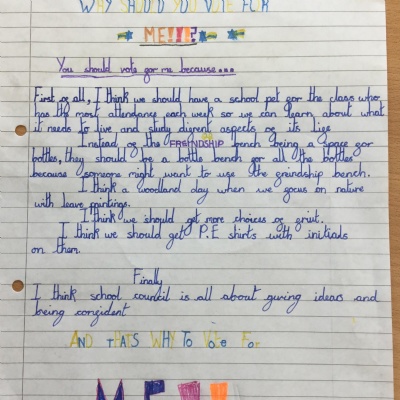 WHY SHOULD YOU VOTE FOR
ME!!!?
You should vote for me because...
First of all, I think we should have a school pet for the class who
has the most attendance each week so we can learn about what
it needs to live and study difrent aspects of its life
Instead of the FRIENDSHIP bench being a space for
bottles, they should be a bottle bench for all the bottles
because someone might want to use the friendship bench.
I think a woodland day when we focus on nature
with leave paintings.
I think we should get more choices of fruit.
I think we should get P.E shirts with initials
on them.
Finally
I think school council is all about giving ideas and
being confident
AND THATS WHY TO VOTE FOR
ME!!